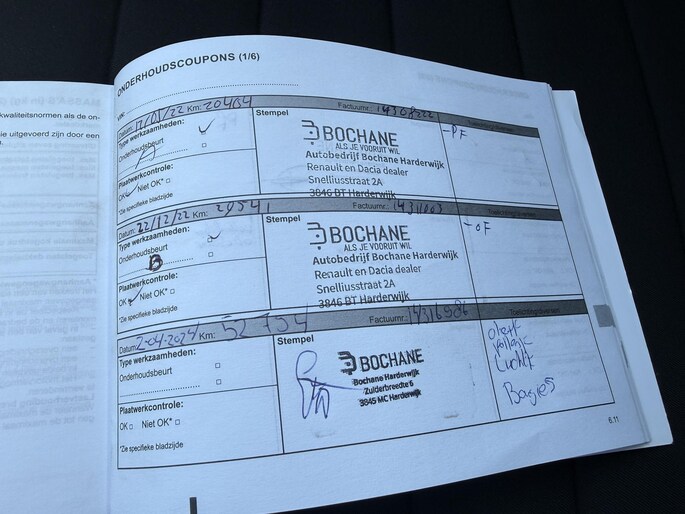 kwaliteitsnormen als de on-
ie uitgevoerd zijn door een
ONDERHOUDSCOUPONS (1/6)
VIN:
Datum: 17/03/22 Km: 20464 Factuurnr.:
Type werkzaamheden:
Onderhoudsbeurt
A
Plaatwerkcontrole:
OK Niet OK*
*Zie specifieke bladzijde
Stempel
BOCHANE
ALS JE VOORUIT WIL
Autobedrijf Bochane Harderwijk
Renault en Dacia dealer
Snelliusstraat 2A
3846 BT Harderwijk
- PF
Datum: 22/12/22 Km: 29541 Factuurnr.:
Type werkzaamheden:
Onderhoudsbeurt
B
Plaatwerkcontrole:
OK Niet OK*
*Zie specifieke bladzijde
Stempel
BOCHANE
ALS JE VOORUIT WIL
Autobedrijf Bochane Harderwijk
Renault en Dacia dealer
Snelliusstraat 2A
3846 BT Harderwijk
- OF
Datum: 2-04-2024 Km: 52 754 Factuurnr.: 14316986
Type werkzaamheden:
Onderhoudsbeurt
Plaatwerkcontrole:
OK Niet OK*
*Zie specifieke bladzijde
Stempel
BOCHANE
Bochane Harderwijk
Zuiderbreedte 6
3845 MC Harderwijk
Bougies
6.11